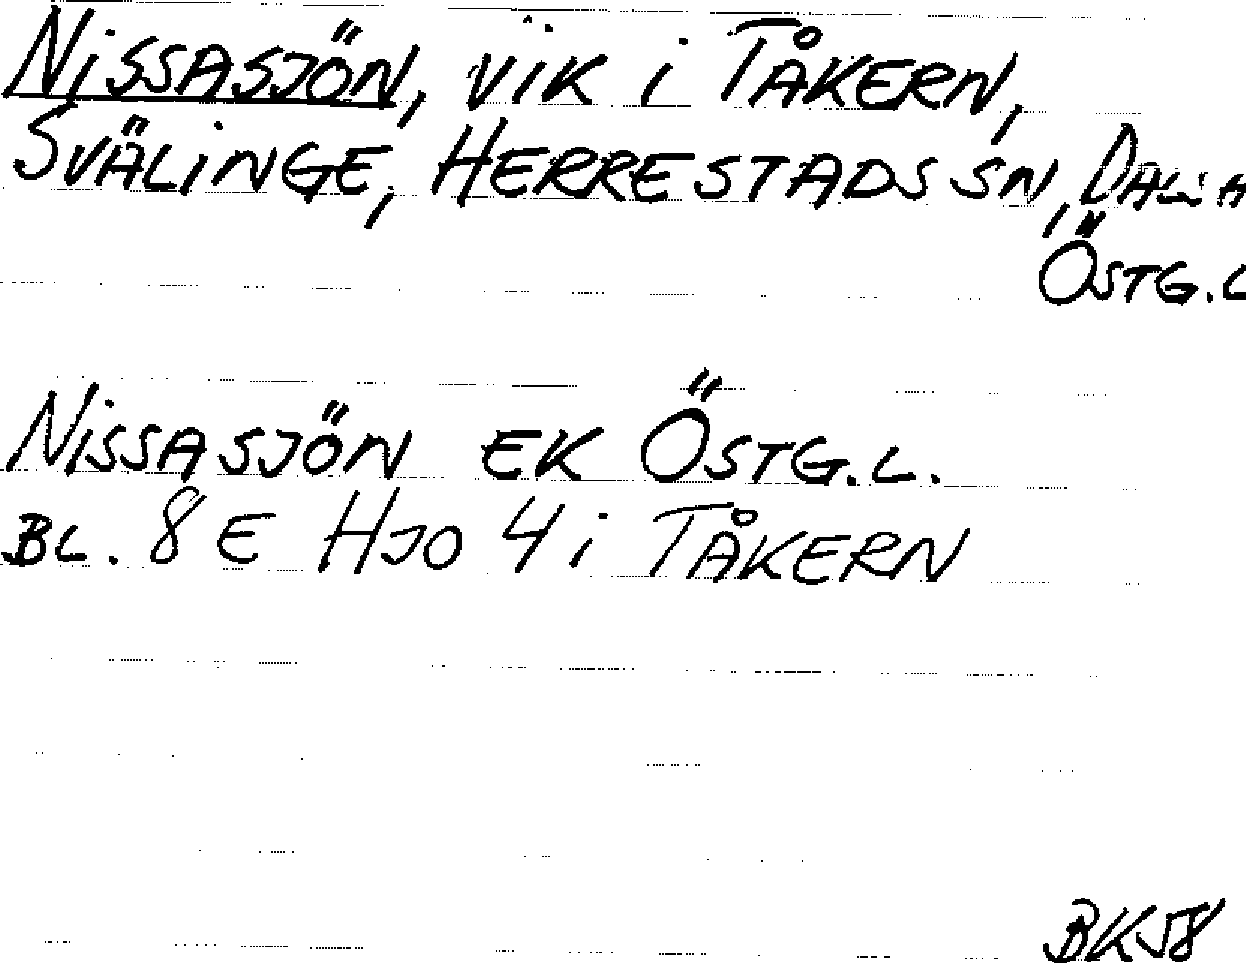 NISSASJÖN, VIK I TÅKERN,
SVÄLINGE, HERRESTADS SN, DALS H
ÖSTG. L
NISSASJÖN EK ÖSTG. L.
BL. 8 E HJO 4 i TÅKERN
BK58